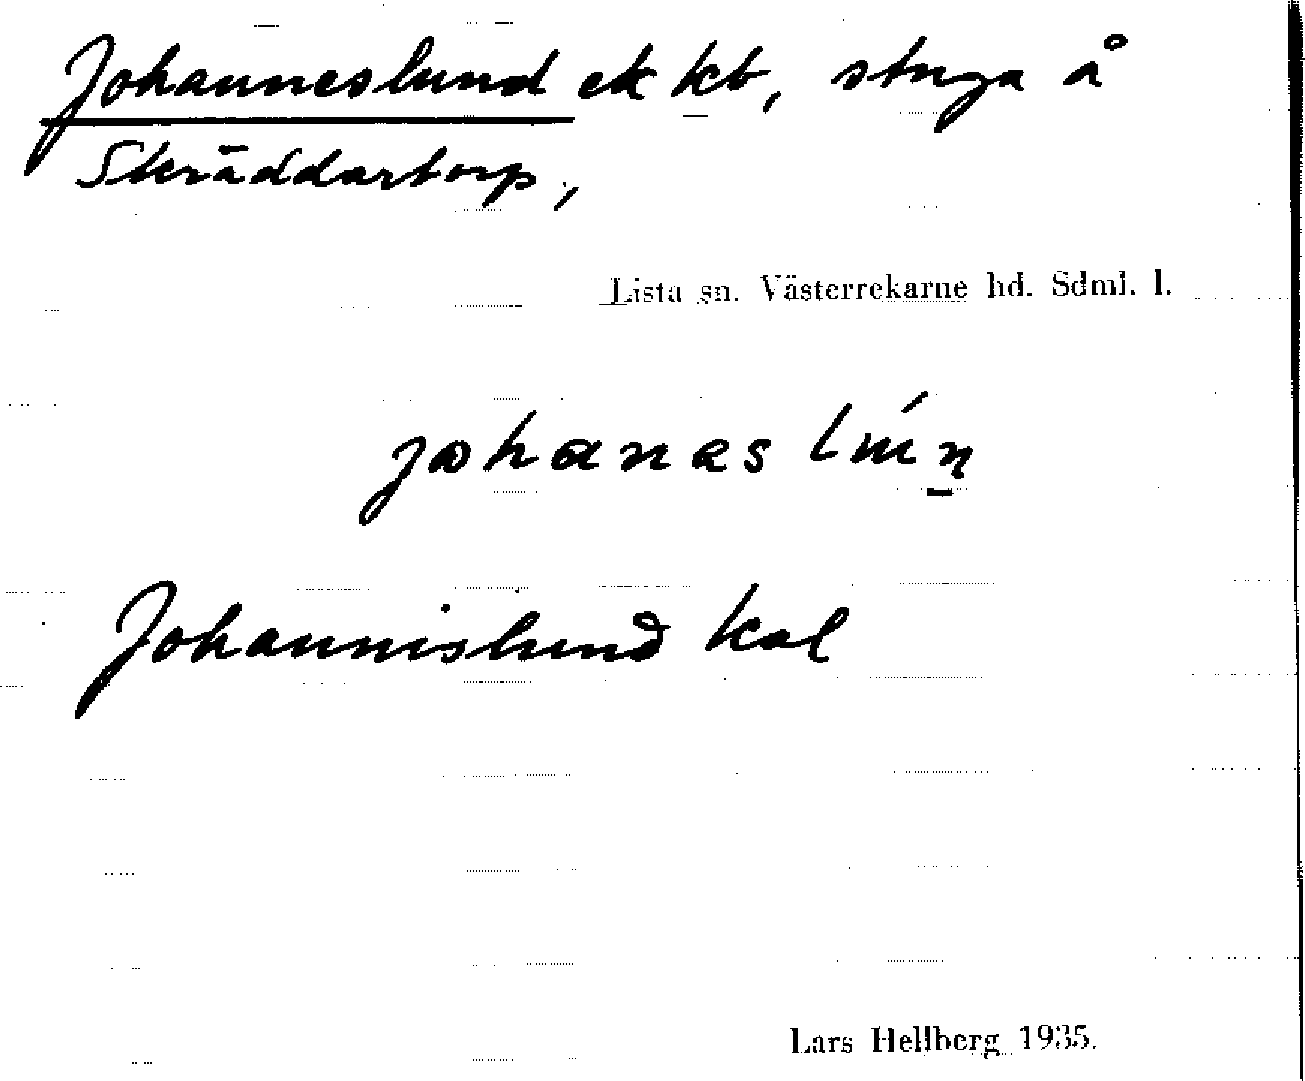 Johanneslund ek kb, stuga å
Skräddartorp,
Lista sn. Västerrekarne hd. Sdml. l.
Johannislund kal
Lars Hellberg 1935.